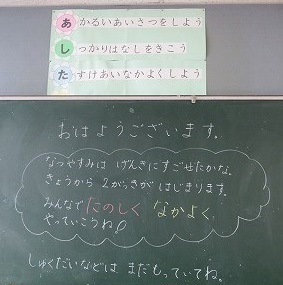 あかるいあいさつをしよう
しっかりはなしをきこう
たすけあいなかよくしよう
おはようございます。
なつやすみは げんきにすごせたかな。
きょうから 2がっきが はじまります。
みんなで たのしく なかよく
やっていこうね!
しゅくだいなどは まだもっていてね。